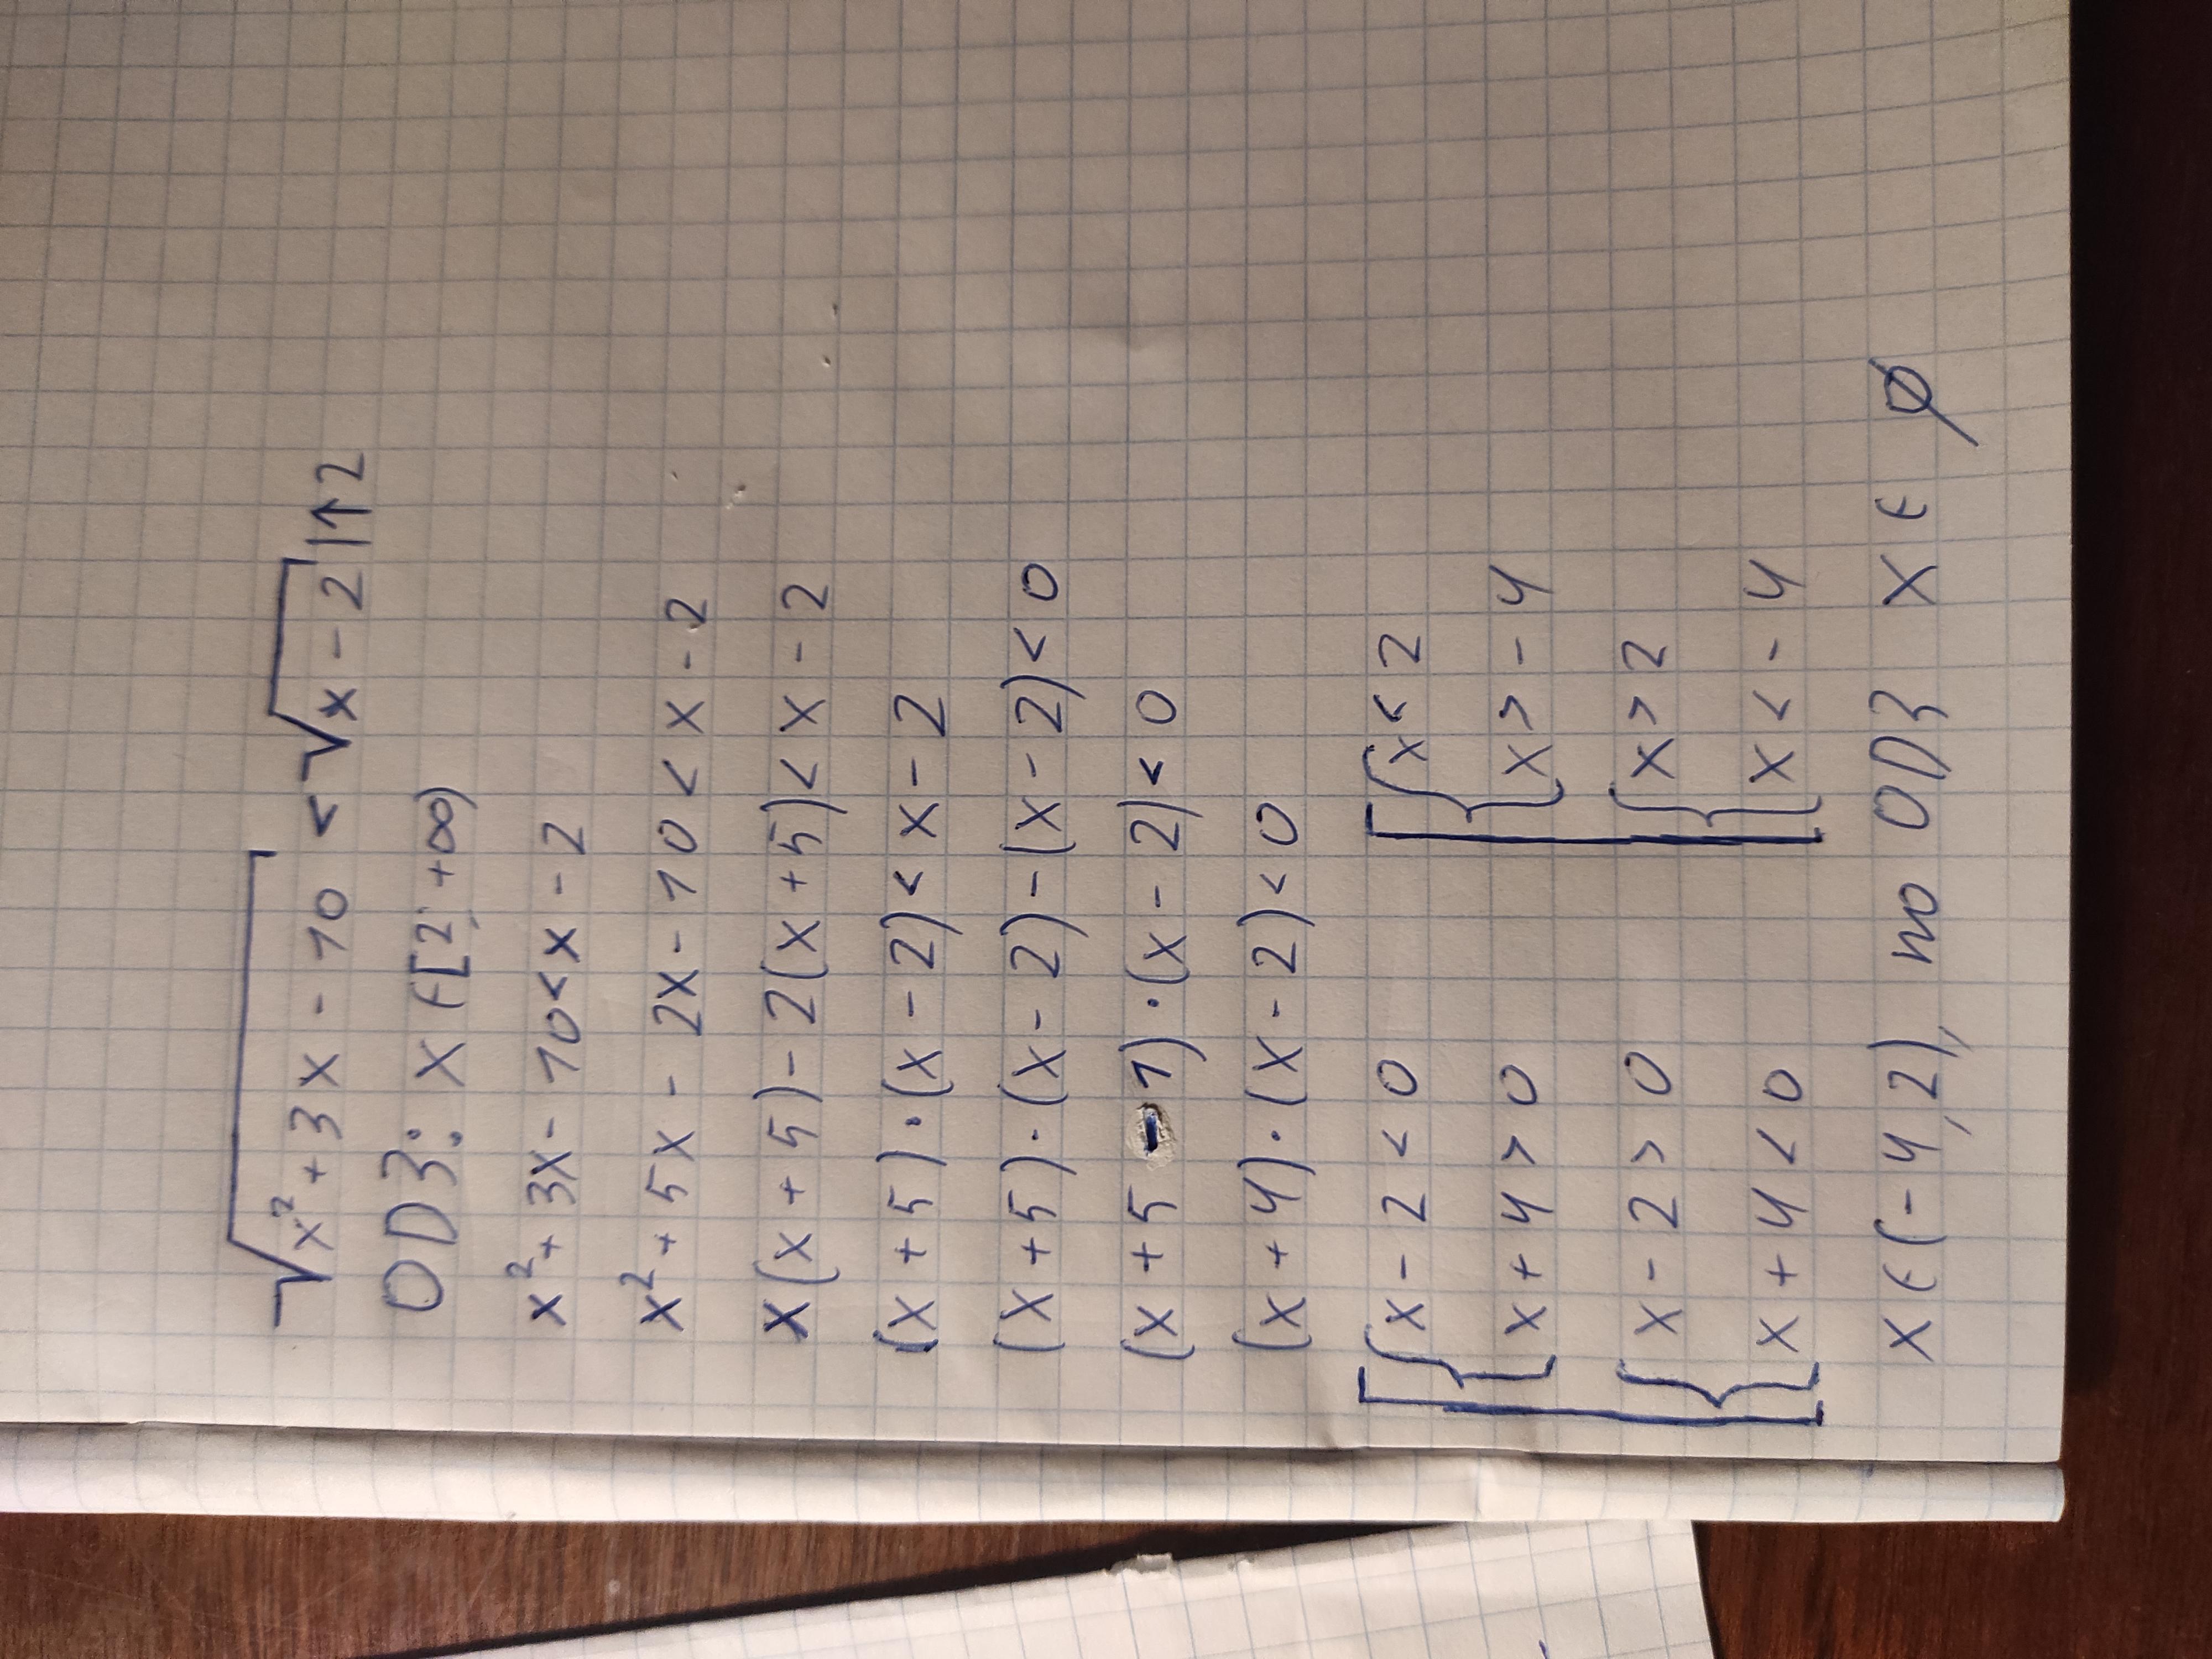 √(x² + 3x - 10) < √(x - 2) |↑2
ОДЗ: x ∈ [2, +∞)
x² + 3x - 10 < x - 2
x² + 5x - 2x - 10 < x - 2
x(x + 5) - 2(x + 5) < x - 2
(x + 5) · (x - 2) < x - 2
(x + 5) · (x - 2) - (x - 2) < 0
(x + 5 - 1) · (x - 2) < 0
(x + 4) · (x - 2) < 0
[ { x - 2 < 0 [ { x < 2
x + 4 > 0 x > -4
{ x - 2 > 0 { x > 2
x + 4 < 0 x < -4
x ∈ (-4, 2), по ОДЗ x ∈ ∅